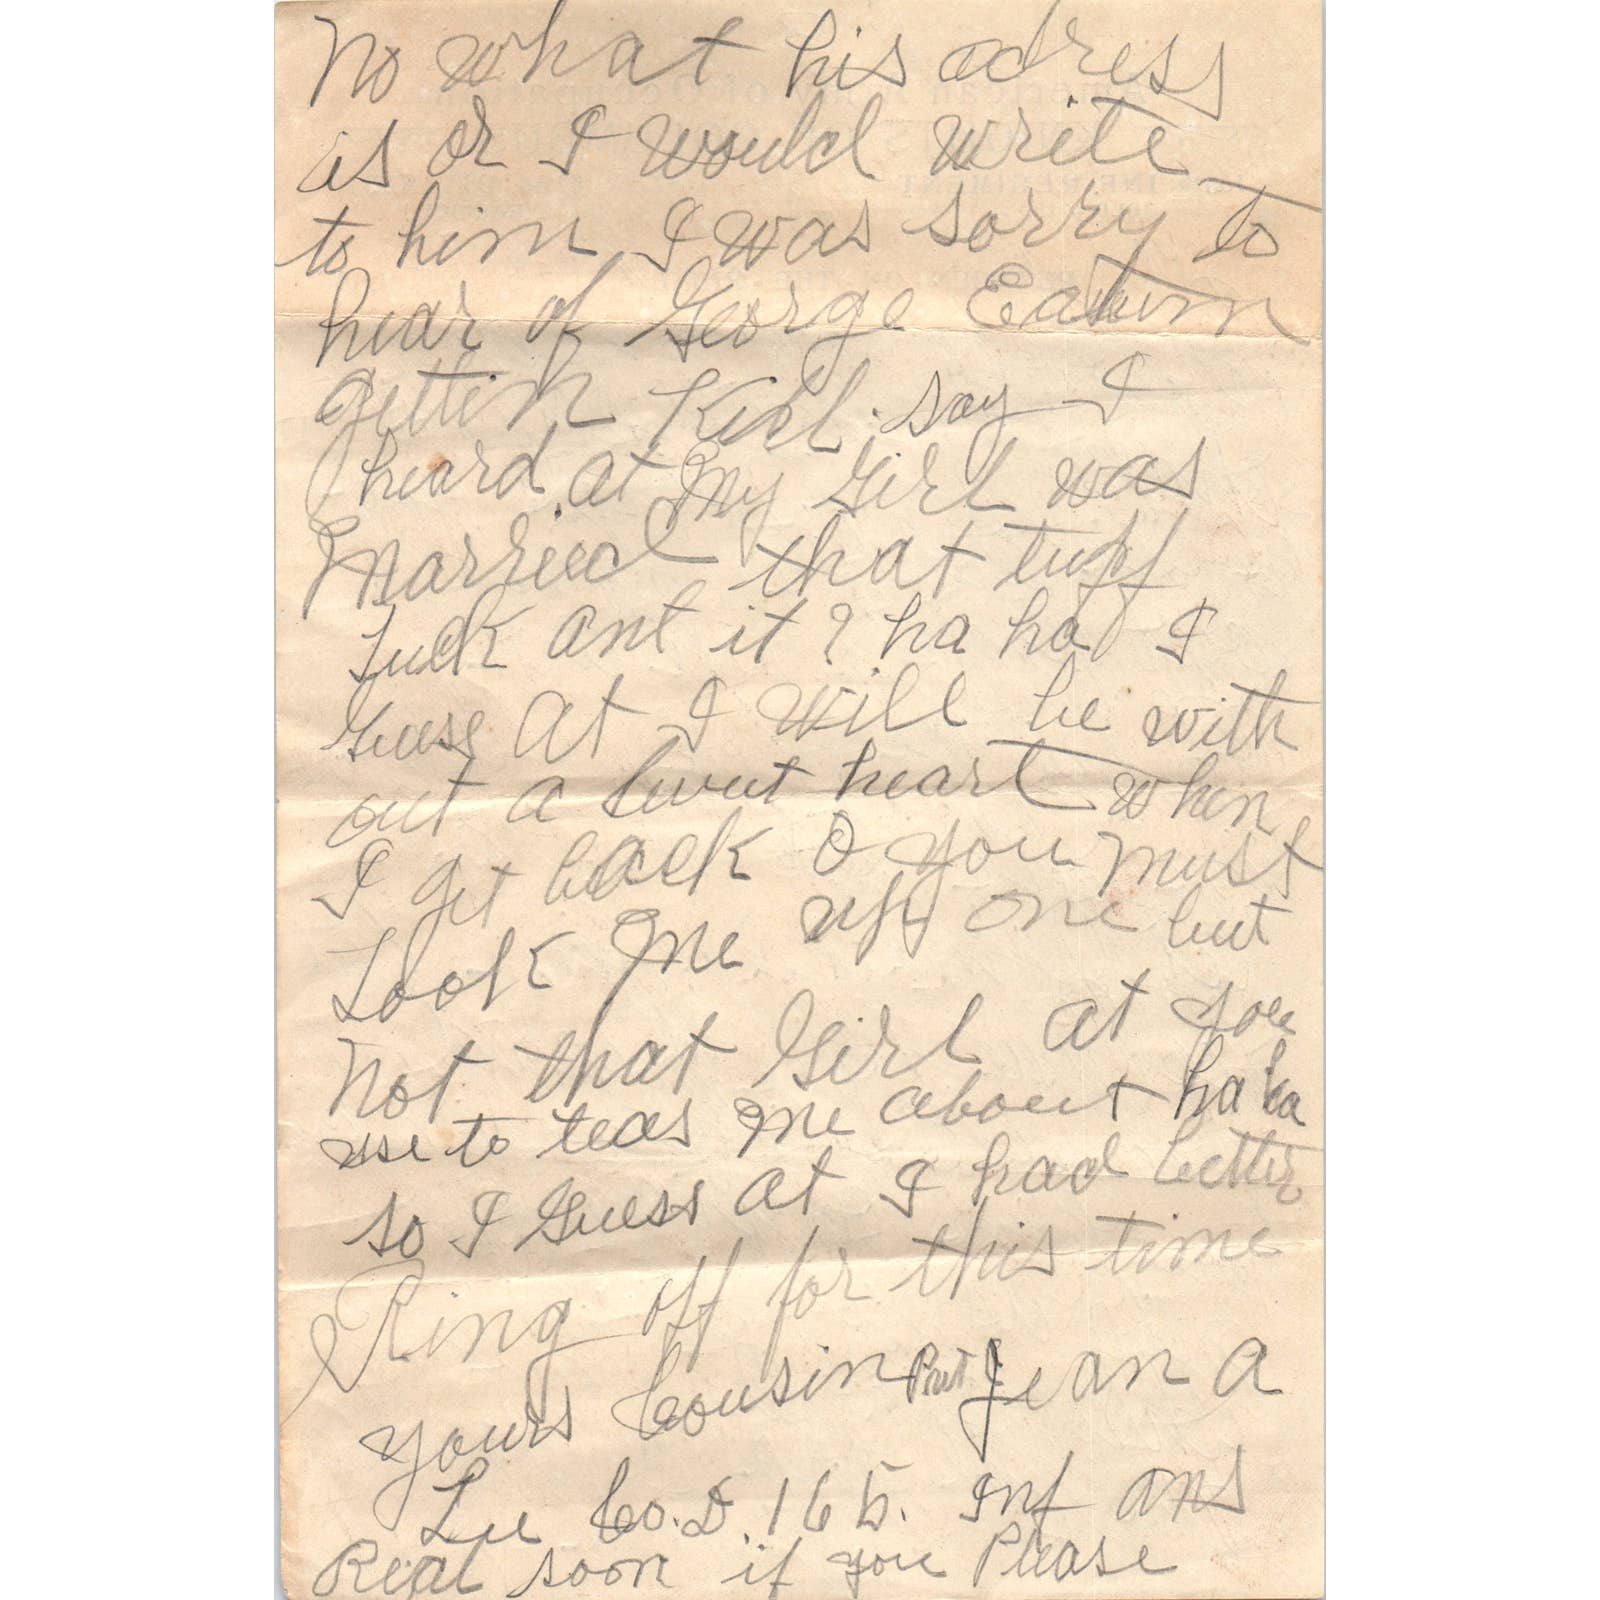 No what his adress
is or I would write
to him I was sorry to
hear of George Eatum
gettin Kild. say I
heard at My Girl was
Married that tuff
Luck ant it? ha ha I
Guess At I will be with
out a sweet heart when
I get back O you Must
Look Me up one but
Not that Girl at you
use to teas Me about ha ha
so I Guess at I had better
Ring off for this time
yours Cousin Pvt Jean A
Lee Co. D. 165. Inf ans
Real soon if you Please